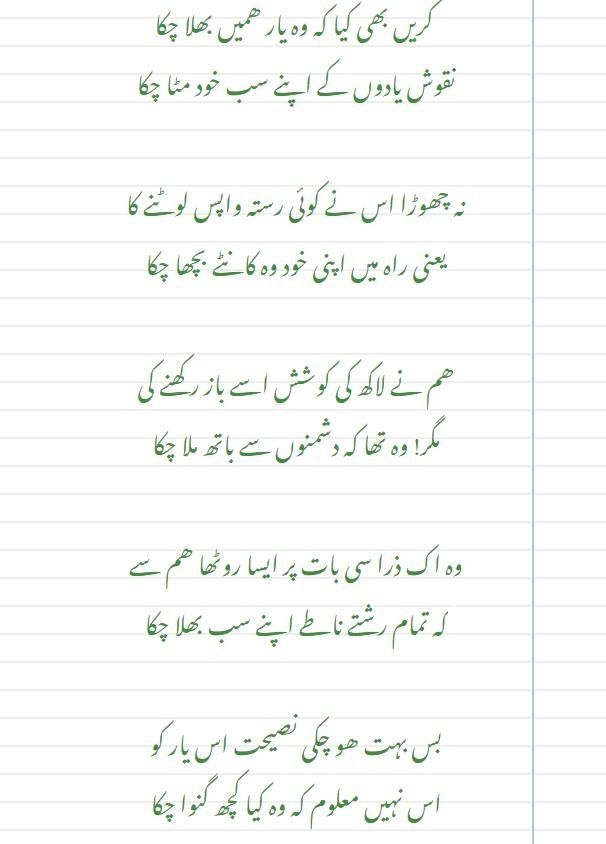 کریں بھی کیا کہ وہ یار ھمیں بھلا چکا
نقوش یادوں کے اپنے سب خود مٹا چکا
نہ چھوڑا اس نے کوئی رستہ واپس لوٹنے کا
یعنی راہ میں اپنی خود وہ کانٹے بچھا چکا
ھم نے لاکھ کی کوشش اسے باز رکھنے کی
مگر! وہ تھا کہ دشمنوں سے ہاتھ ملا چکا
وہ اک ذرا سی بات پر ایسا روٹھا ھم سے
کہ تمام رشتے ناطے اپنے سب بھلا چکا
بس بہت ھو چکی نصیحت اس یار کو
اس نہیں معلوم کہ وہ کیا کچھ گنوا چکا